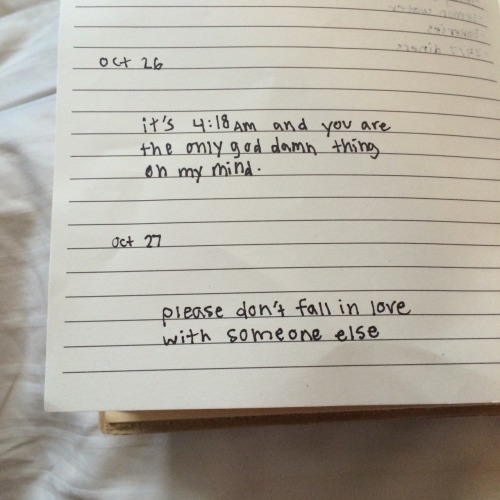 oct 26
it's 4:18 AM and you are
the only god damn thing
on my mind.
oct 27
please don't fall in love
with someone else